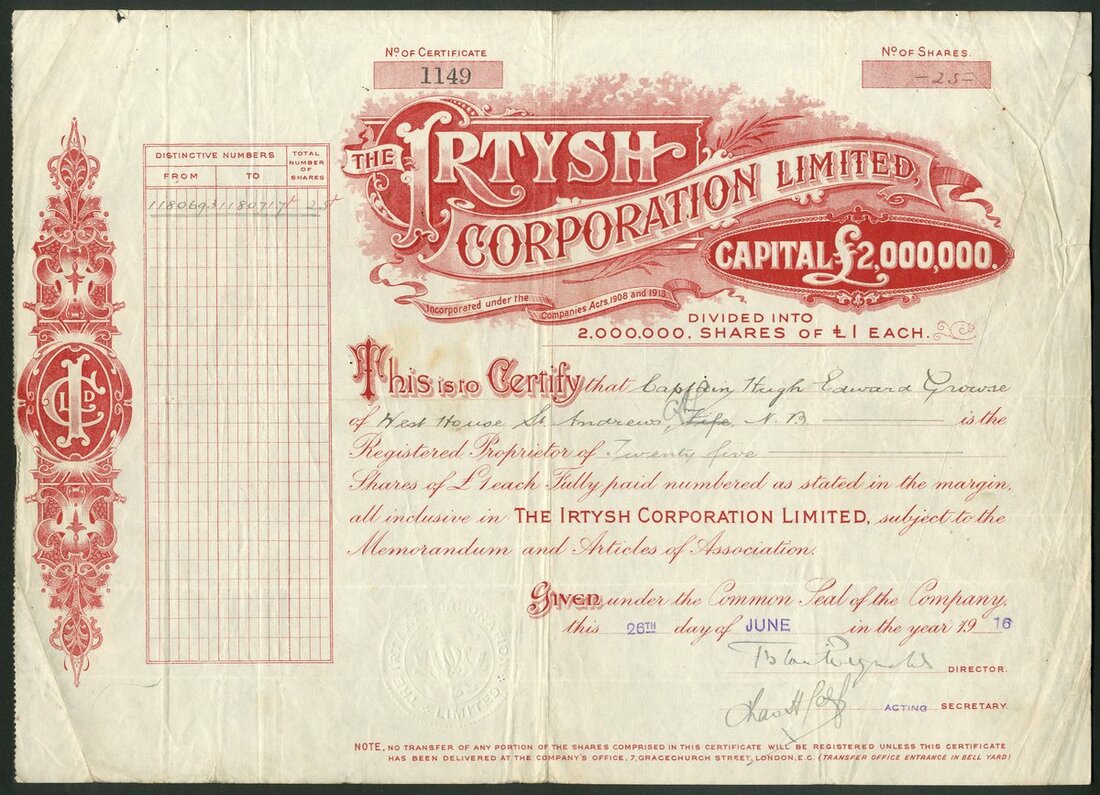 No OF CERTIFICATE
1149
No OF SHARES.
-25-
THE IRTYSH
CORPORATION LIMITED,
CAPITAL £2,000,000.
Incorporated under the Companies Acts, 1908 and 1913.
DIVIDED INTO
2,000,000, SHARES OF £1 EACH.
DISTINCTIVE NUMBERS
TOTAL NUMBER OF SHARES
FROM TO
1180693 1180717 25
ICLD
This is to Certify that Captain Hugh Edward Growse
of West House St Andrews, Fife, N.B. is the
Registered Proprietor of Twenty five
Shares of £1 each Fully paid numbered as stated in the margin,
all inclusive in THE IRTYSH CORPORATION LIMITED, subject to the
Memorandum and Articles of Association.
Given under the Common Seal of the Company,
this 26TH day of JUNE in the year 19 16
DIRECTOR.
ACTING SECRETARY.
THE IRTYSH CORPORATION LIMITED
NOTE, NO TRANSFER OF ANY PORTION OF THE SHARES COMPRISED IN THIS CERTIFICATE WILL BE REGISTERED UNLESS THIS CERTIFICATE
HAS BEEN DELIVERED AT THE COMPANY'S OFFICE, 7, GRACECHURCH STREET, LONDON, E.C. (TRANSFER OFFICE ENTRANCE IN BELL YARD)